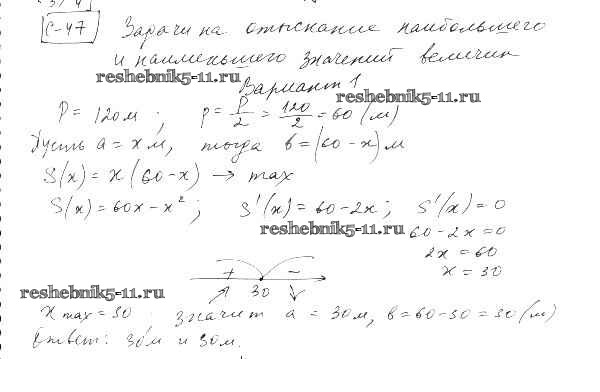 С-47 Задачи на отыскание наибольшего
и наименьшего значений величин
reshebnik5-11.ru
Вариант 1
reshebnik5-11.ru
P = 120м ; p = P/2 = 120/2 = 60 (м)
Пусть a = x м, тогда в = (60 - x) м
S(x) = x (60 - x) → max
S(x) = 60x - x²; S'(x) = 60 - 2x; S'(x) = 0
reshebnik5-11.ru
60 - 2x = 0
2x = 60
x = 30
+ -
30
reshebnik5-11.ru
x max = 30 значит a = 30м, в = 60 - 30 = 30 (м)
Ответ: 30м и 30м.